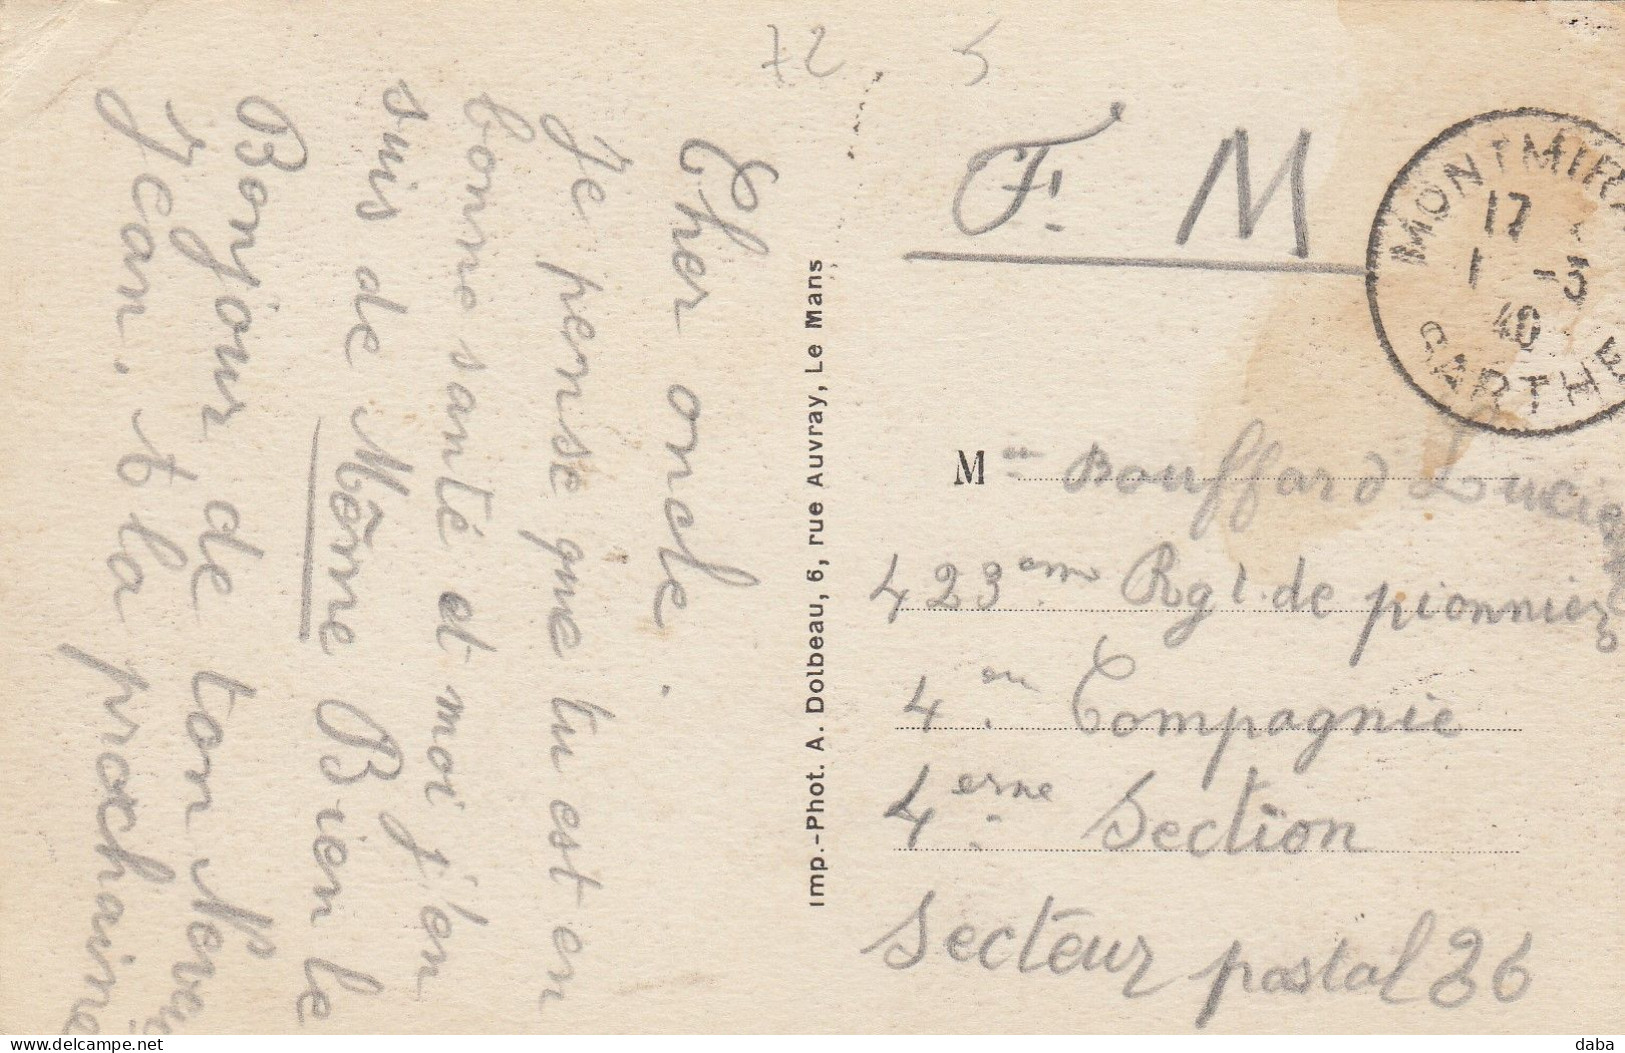 72. 5
F. M
MONTMIRA
17
1 -3
40
SARTHE
Cher oncle.
Je pense que tu est en
bonne santé et moi j'en
suis de Même Bien le
Bonjour de ton Neveu
Jean. A la prochaine
Imp.-Phot. A. Dolbeau, 6, rue Auvray, Le Mans
M Bouffard Lucien
423eme Rgt. de pionniers
4. Compagnie
4.eme Section
Secteur postal 36
daba